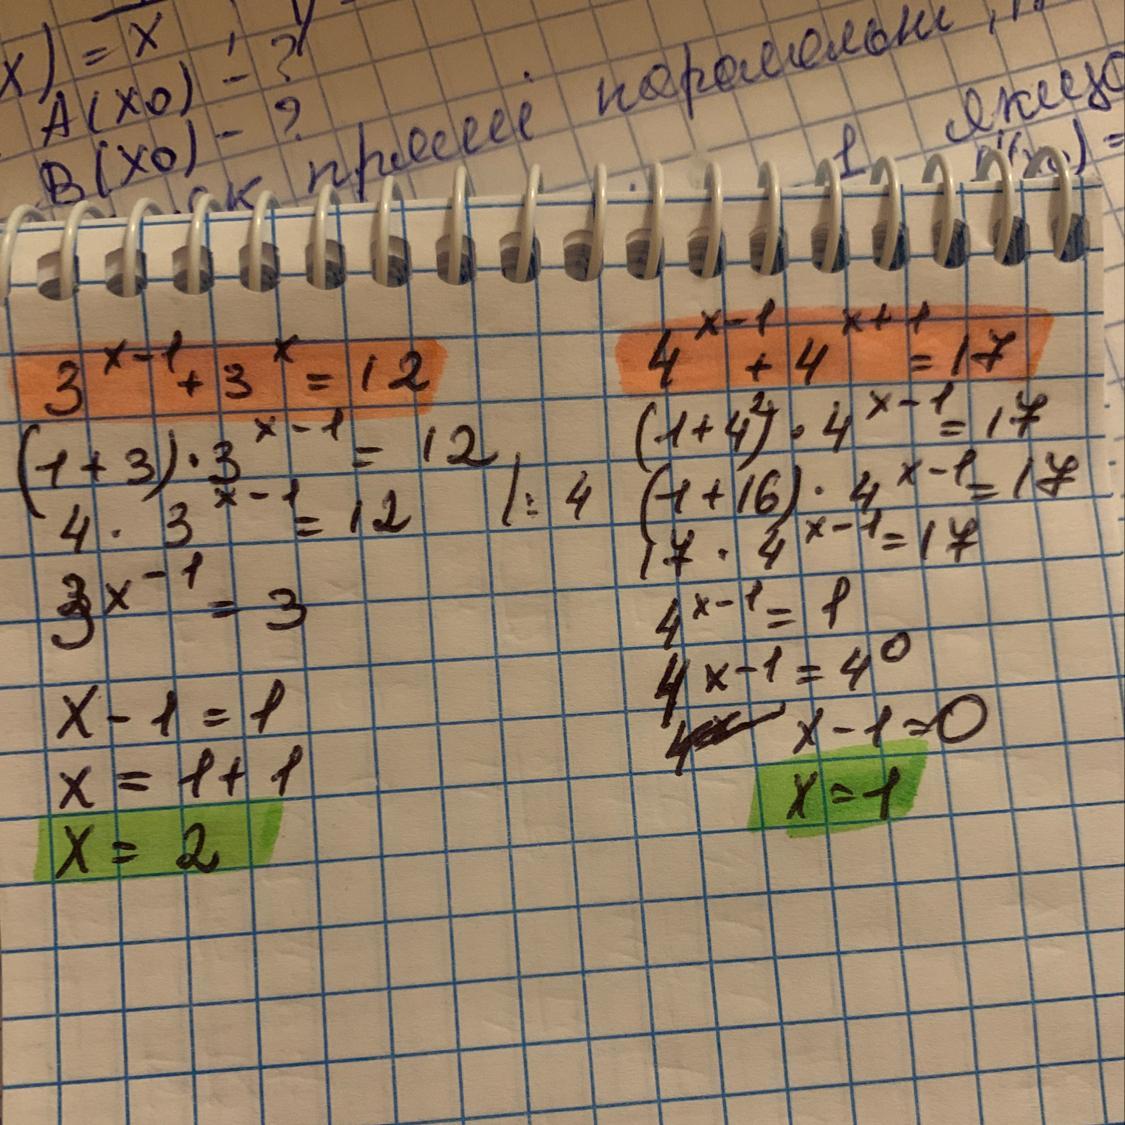 x) = x
A(x0) - ?
B(x0) - ?
прямі паралельні,
якщо
1
3^(x-1) + 3^x = 12
(1+3)·3^(x-1) = 12
4 · 3^(x-1) = 12 | : 4
3^(x-1) = 3
x - 1 = 1
x = 1 + 1
x = 2
4^(x-1) + 4^(x+1) = 17
(1+4^2)·4^(x-1) = 17
(1+16)·4^(x-1) = 17
17 · 4^(x-1) = 17
4^(x-1) = 1
4^(x-1) = 4^0
x - 1 = 0
x = 1